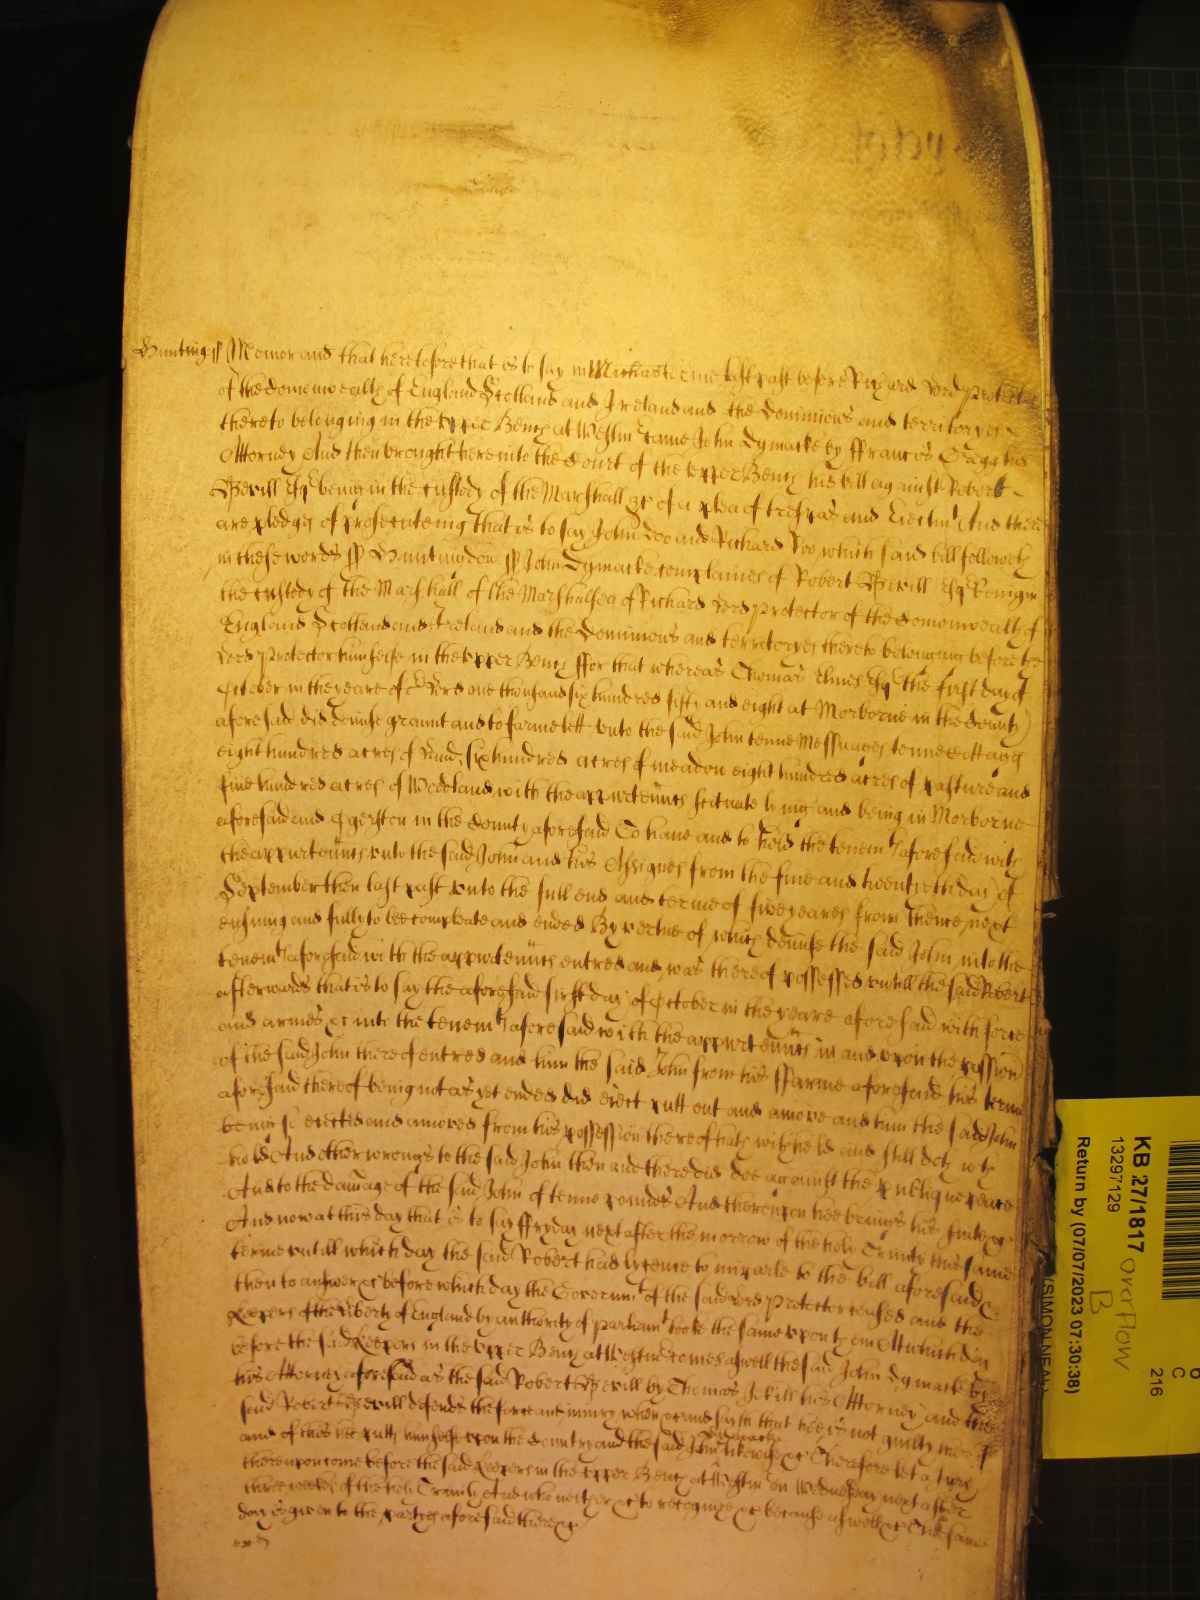 Hunting ss Memorand that heretofore that is to say in Michas terme last past before Richard Lord Protector
of the Comonwealth of England Scotland and Ireland and the Dominions and territoryes
thereto belonging in the Upper Bench at Westm came John Dymacke by Francis Cragg his
Attorney And then brought here into the Court of the Upper Bench his bill against Robert
Apevill Esq being in the custody of the Marshall &c of a plea of trespas and Eiectmt And there
are pledges of prosecuteing that is to say John Doo and Richard Roo which said bill followeth
in these words ss Huntingdon ss John Dymacke complaines of Robert Apevill Esq being in
the custody of the Marshall of the Marshalsea of Richard Lord Protector of the Comonwealth of
England Scotland and Ireland and the Dominions and territoryes thereto belonging before the
Lord Protector himselfe in the Upper Bench ffor that whereas Thomas Elmes Esq the first day of
October in the yeare of or Lord one thousand six hundred fifty and eight at Morborne in the County
aforesaid did demise graunt and to farme lett unto the said John tenne Messuages tenne Cottages
eight hundred acres of land, six hundred acres of meadow eight hundred acres of pasture and
five hundred acres of Woodland with the appurtennts scituate lying and being in Morborne
aforesaid and Ogerston in the County aforesaid To have and to hold the tenemts aforesaid with
the appurtennts unto the said John and his Assignes from the five and twentieth day of
September then last past unto the full end and terme of five yeares from thence next
ensuing and fully to bee compleate and ended By vertue of which demise the said John into the
tenemts aforesaid with the appurtennts entred and was thereof possessed untill the said Robert
afterwards that is to say the aforesaid first day of October in the yeare aforesaid with force
and armes &c into the tenemts aforesaid with the appurtennts in and upon the possion
of the said John thereof entred and him the said John from his ffarme aforesaid his terme
aforesaid thereof being not as yet ended did eiect putt out and amove and him the said John
being so eiected and amoved from his possession thereof hath witheld and still doth with
hold And other wrongs to the said John then and there did doe against the publique peace
And to the damage of the said John of tenne pounds And thereupon hee brings his suite &c
And now at this day that is to say ffryday next after the morrow of the holy Trinity this same
terme untill which day the said Robert had lycence to imparle to the bill aforesaid &
then to answer &c before which day the Governmt of the said Lord Protector ceased and the
Keepers of the liberty of England by authority of parliamt tooke the same upon them Att which day
before the said Keepers in the Upper Bench at Westm comes aswell the said John Dymacke by
his Attorney aforesaid as the said Robert Apevill by Thomas Jekill his Attorney and the
said Robert Apevill defends the force and iniury when &c and saith that hee is not guilty thereof
and of this hee putts himselfe upon the Country and the said John Dymacke likewise &c Therefore let a Jury
thereupon come before the said Keepers in the Upper Bench at Westm on Wednesday next after
three weekes of the holy Trinity And who neither &c to recognize &c because aswell &c The same
day is given to the partyes aforesaid there &c
KB 27/1817 overflow
B
13297/129
Return by (07/07/2023 07:30:38)
(SIMON NEAL)
C
216